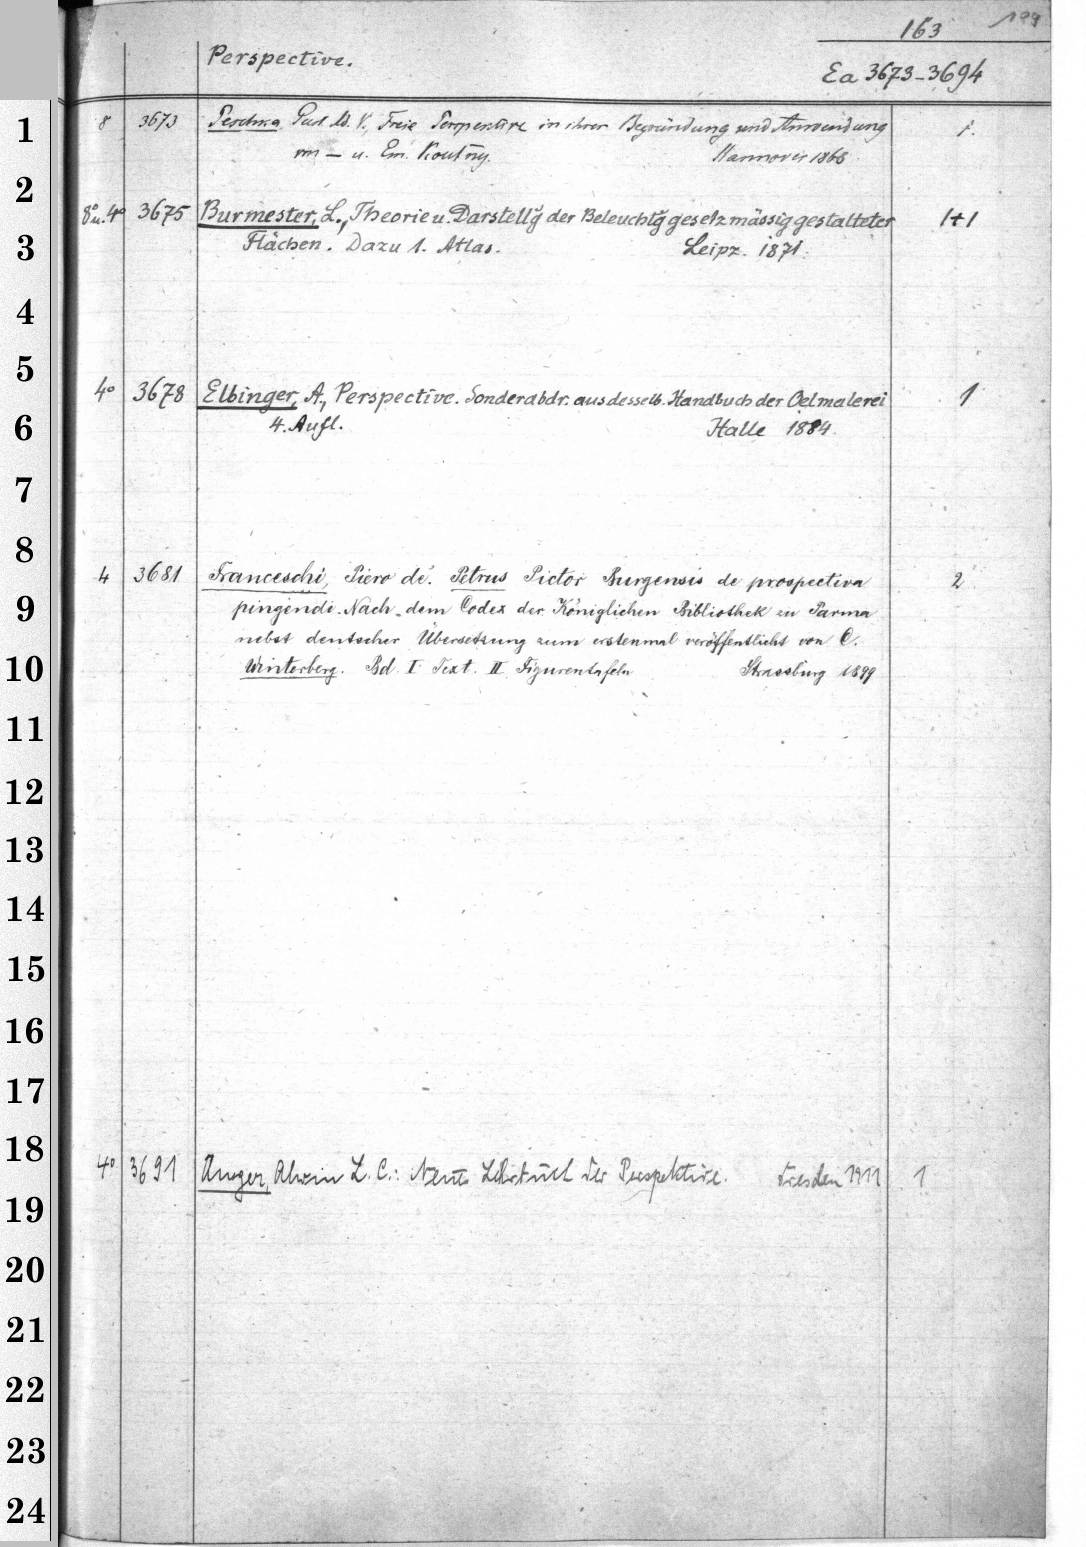 163 199
Perspective.
Ea 3673-3694
1 8 3673 Peschka, Gust. Ad. V., Freie Perspective in ihrer Begründung und Anwendung 1.
von — u. Em. Koutny. Hannover 1868
2
8° u. 4° 3675 Burmester, L., Theorie u. Darstellg der Beleuchtg gesetzmässig gestalteter 1+1
3 Flächen. Dazu 1. Atlas. Leipz. 1871.
4
5
4° 3678 Elbinger, A., Perspective. Sonderabdr. aus desselb. Handbuch der Oelmalerei 1
6 4. Aufl. Halle 1884.
7
8
4 3681 Franceschi, Piero de'. Petrus Pictor Burgensis de prospectiva 2
9 pingendi. Nach dem Codex der Königlichen Bibliothek zu Parma
nebst deutscher Übersetzung zum erstenmal veröffentlicht von C.
10 Winterberg. Bd. I Text. II Figurentafeln Strassburg 1899
11
12
13
14
15
16
17
18
4° 3691 Unger, Alwin L. C.: Neues Lehrbuch der Perspektive. Dresden 1911 1
19
20
21
22
23
24